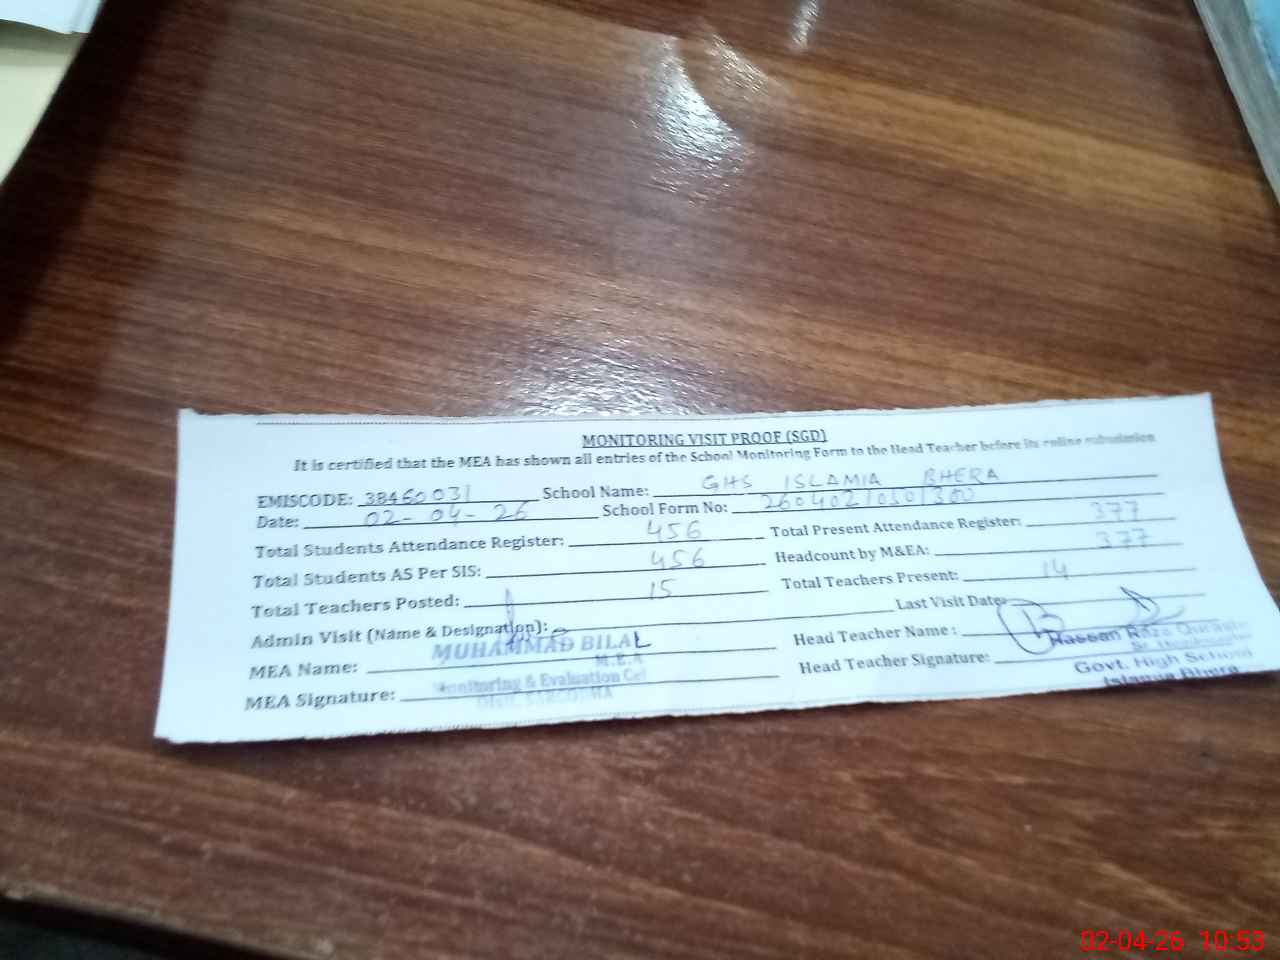 MONITORING VISIT PROOF (SGD)
It is certified that the MEA has shown all entries of the School Monitoring Form to the Head Teacher before its online submission
EMISCODE: 38460031 School Name: GHS ISLAMIA BHERA
Date: 02-04-26 School Form No: 26040210501300
Total Students Attendance Register: 456 Total Present Attendance Register: 377
Total Students AS Per SIS: 456 Headcount by M&EA: 377
Total Teachers Posted: 15 Total Teachers Present: 14
Admin Visit (Name & Designation): Last Visit Date:
MEA Name: MUHAMMAD BILAL Head Teacher Name: Hassan Raza
M.E.A
MEA Signature: Monitoring & Evaluation Cel Head Teacher Signature: Govt. High School
Distt. SARGODHA Islamia Bhera
02-04-26 10:53